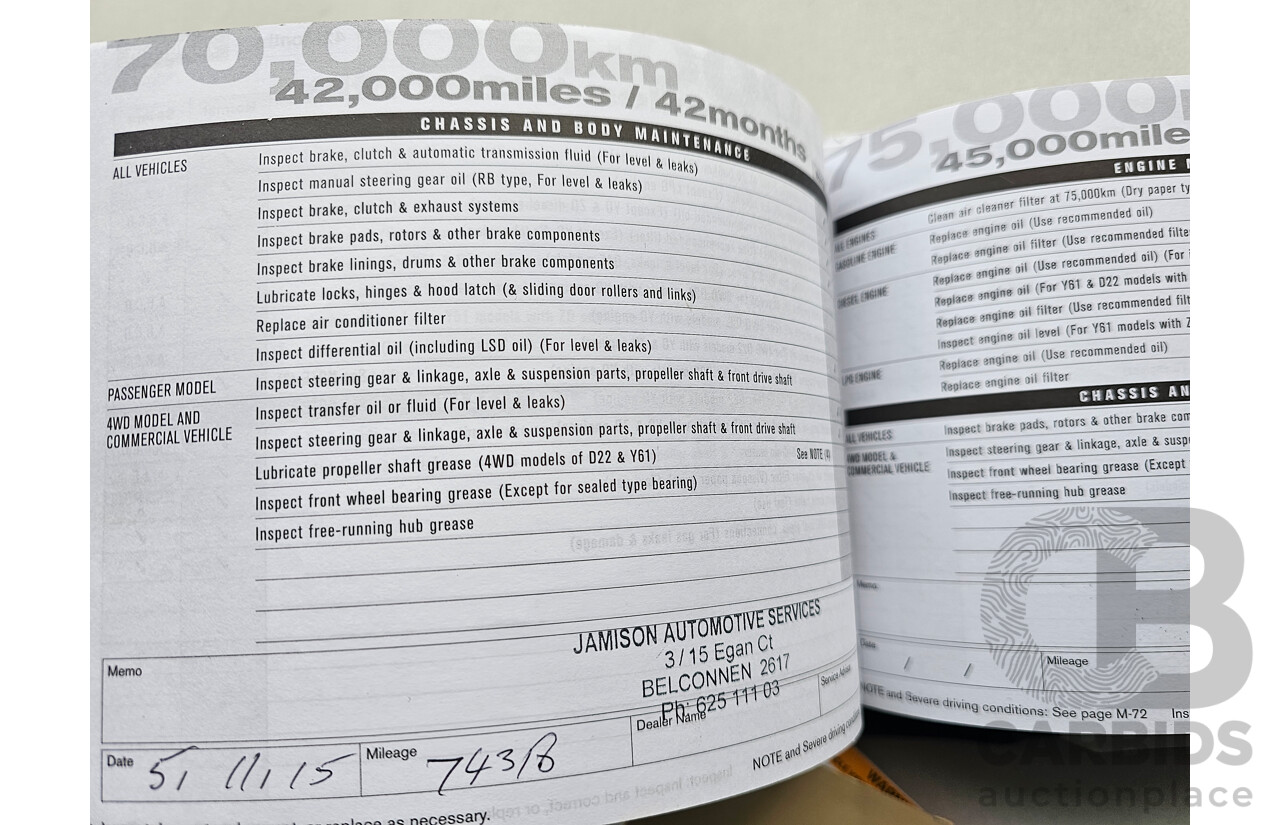 70,000km
42,000miles / 42months
CHASSIS AND BODY MAINTENANCE
ALL VEHICLES
Inspect brake, clutch & automatic transmission fluid (For level & leaks)
Inspect manual steering gear oil (RB type, For level & leaks)
Inspect brake, clutch & exhaust systems
Inspect brake pads, rotors & other brake components
Inspect brake linings, drums & other brake components
Lubricate locks, hinges & hood latch (& sliding door rollers and links)
Replace air conditioner filter
Inspect differential oil (including LSD oil) (For level & leaks)
PASSENGER MODEL
Inspect steering gear & linkage, axle & suspension parts, propeller shaft & front drive shaft
4WD MODEL AND
COMMERCIAL VEHICLE
Inspect transfer oil or fluid (For level & leaks)
Inspect steering gear & linkage, axle & suspension parts, propeller shaft & front drive shaft
Lubricate propeller shaft grease (4WD models of D22 & Y61) See NOTE (4)
Inspect front wheel bearing grease (Except for sealed type bearing)
Inspect free-running hub grease
JAMISON AUTOMOTIVE SERVICES
3/15 Egan Ct
BELCONNEN 2617
Ph: 625 111 03
Memo
Date 5, 11, 15
Mileage 74318
Dealer Name
Service Advisor
NOTE and Severe driving
replace as necessary.
75,000
45,000mile
ENGINE
Clean air cleaner filter at 75,000km (Dry paper ty
ENGINES
GASOLINE ENGINE
Replace engine oil (Use recommended oil)
Replace engine oil filter (Use recommended filte
DIESEL ENGINE
Replace engine oil (Use recommended oil) (For
Replace engine oil (For Y61 & D22 models with
Replace engine oil filter (Use recommended filt
Inspect engine oil level (For Y61 models with Z
LPG ENGINE
Replace engine oil (Use recommended oil)
Replace engine oil filter
CHASSIS AN
ALL VEHICLES
Inspect brake pads, rotors & other brake com
4WD MODEL &
COMMERCIAL VEHICLE
Inspect steering gear & linkage, axle & susp
Inspect front wheel bearing grease (Except
Inspect free-running hub grease
Memo
Date / /
Mileage
NOTE and Severe driving conditions: See page M-72 Ins
CARBIDS
auctionplace